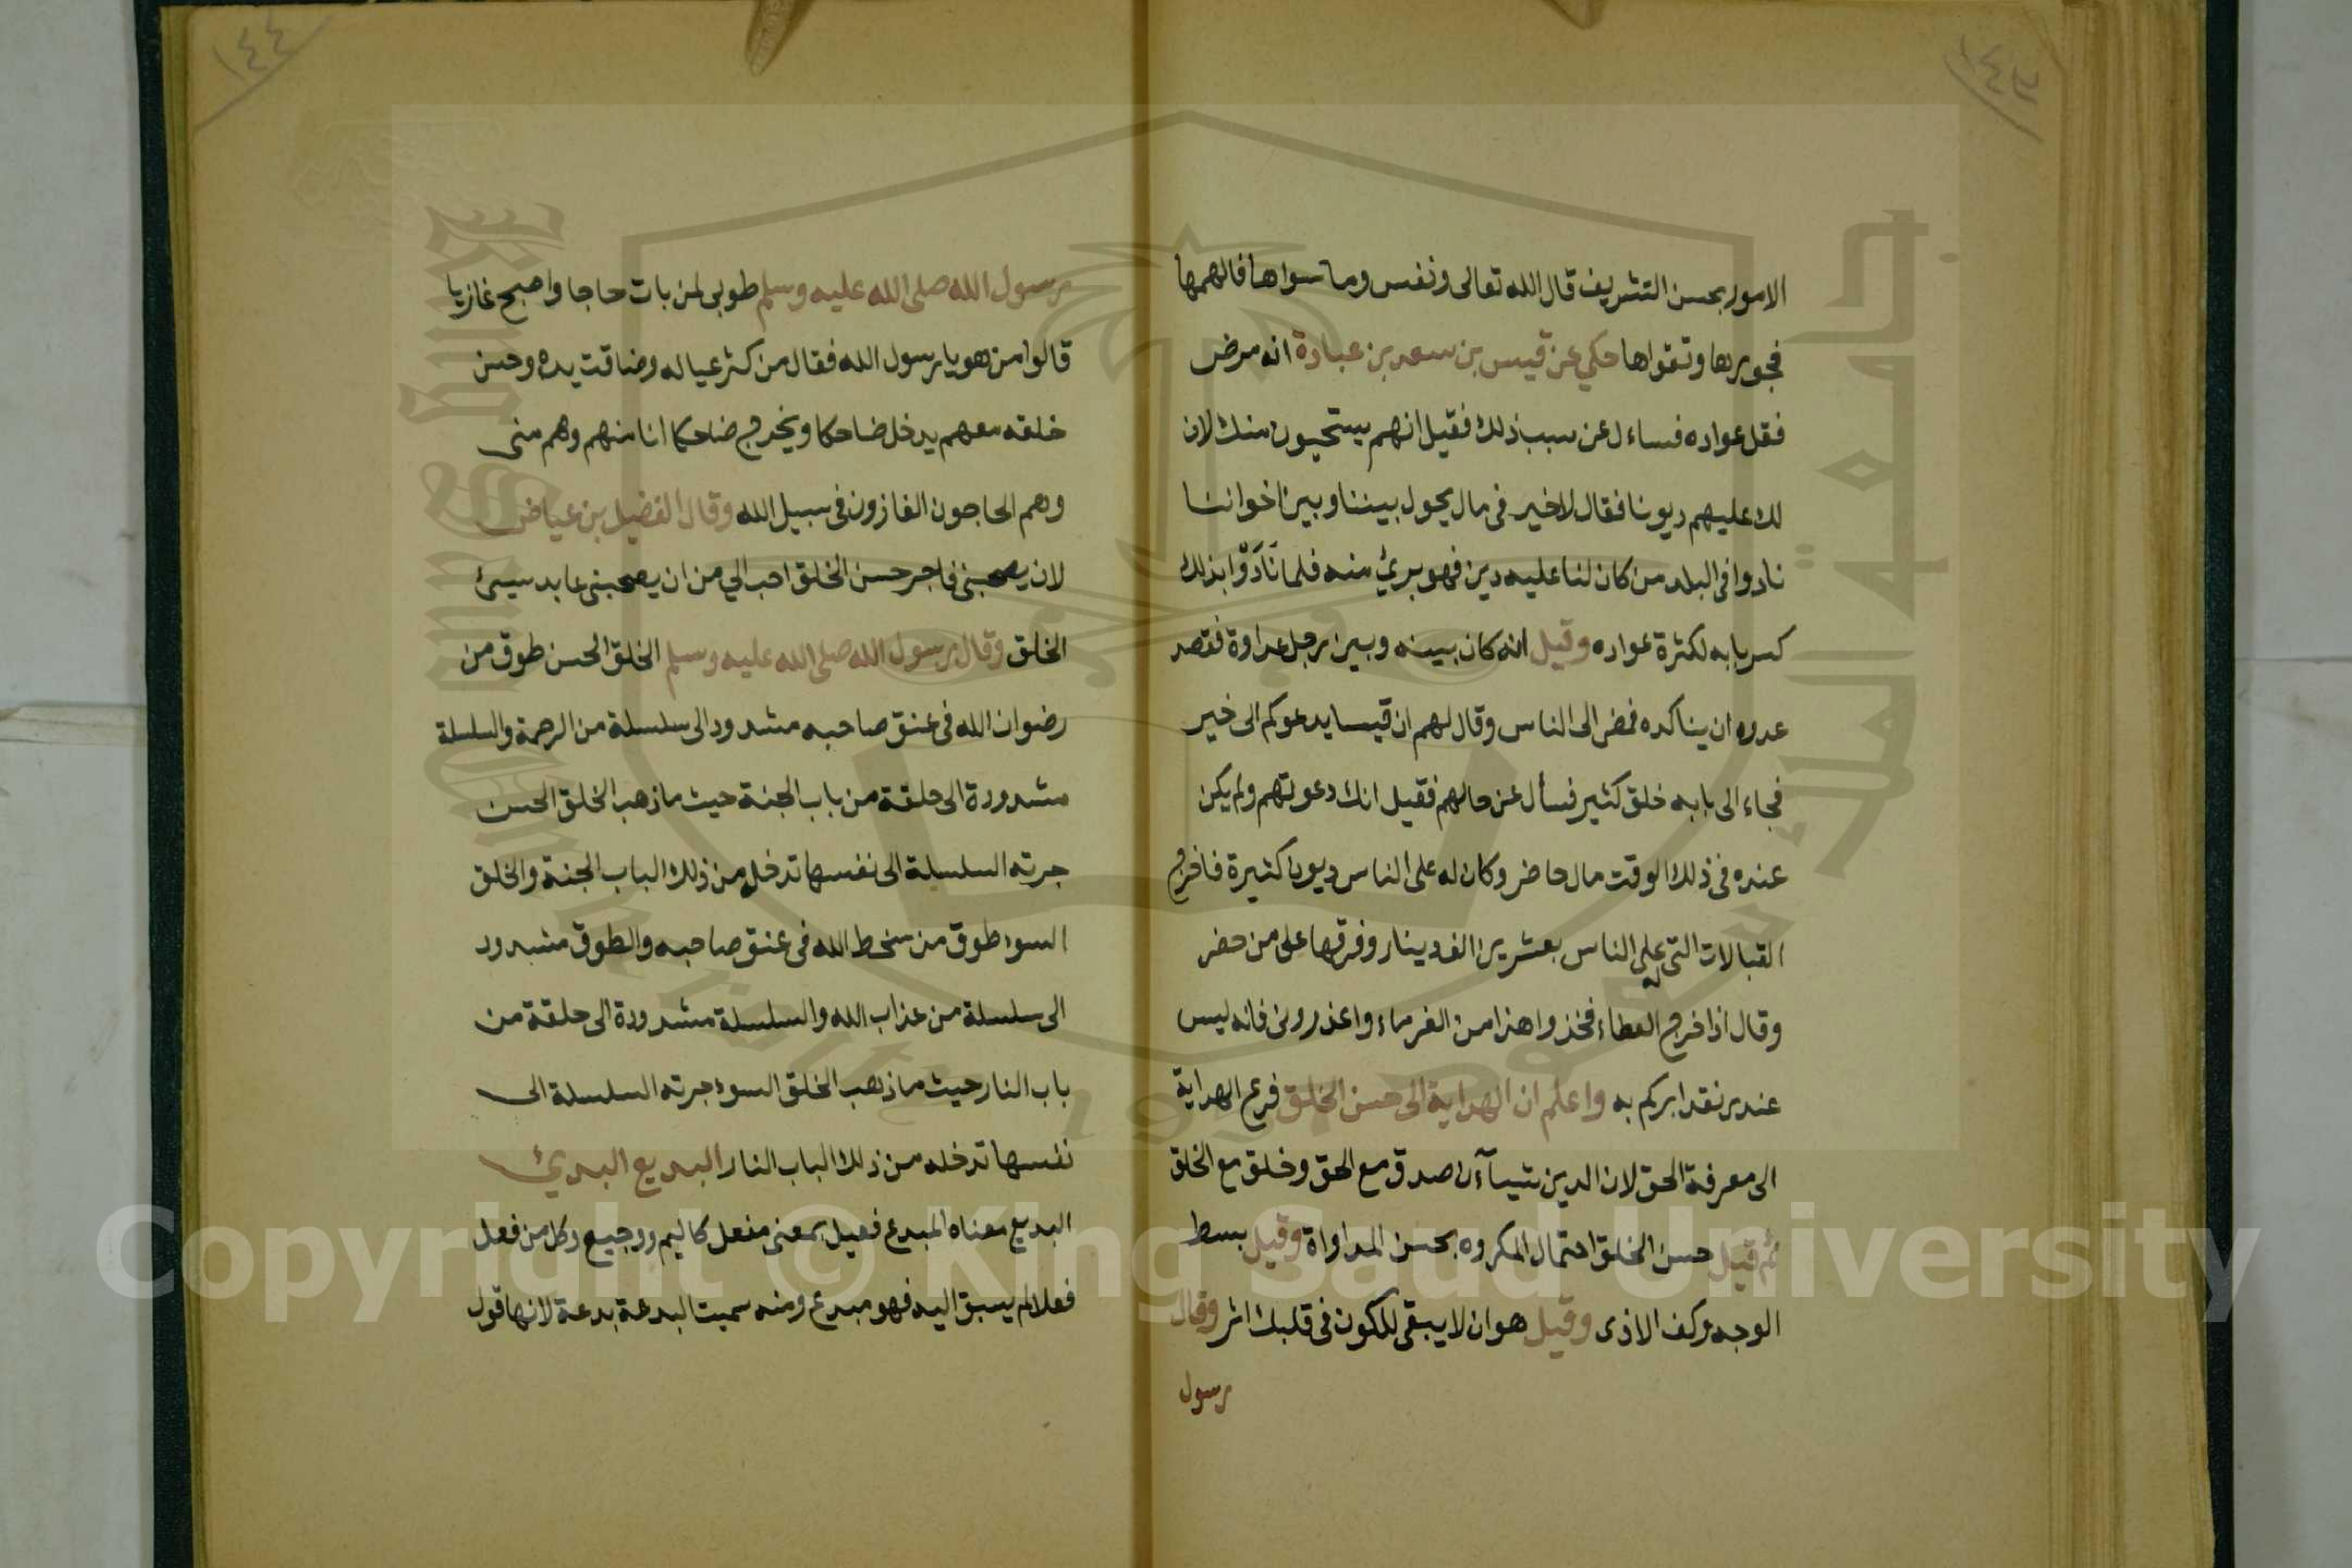 ١٤٣
الامور بحسن التشريف قال الله تعالى ونفس وما سواها فالهمها
فجورها وتقواها حكي عن قيس بن سعد بن عبادة انه مرض
فقل عواده فساءل عن سبب ذلك فقيل انهم يستحيون منك لان
لك عليهم ديونا فقال لا خير في مال يحول بيننا وبين اخواننا
نادوا في البلد من كان لنا عليه دين فهو بريئ منه فلما نَادَوْا بذلك
كسر بابه لكثرة عواده وقيل انه كان بينه وبين رجل عداوة فقصد
عدوه ان يناكده فمضى الى الناس وقال لهم ان قيسا يدعوكم الى خير
فجاء الى بابه خلق كثير فسأل عن حالهم فقيل انك دعوتهم ولم يكن
عنده في ذلك الوقت مال حاضر وكان له على الناس ديون كثيرة فاخرج
القبالات التي له على الناس بعشرين الف دينار وفرقها على من حضر
وقال اذا خرج العطاء فخذوا هذا من الغرماء واعذروني فانه ليس
عندي نقد ابركم به واعلم ان الهداية الى حسن الخلق فرع الهداية
الى معرفة الحق لان الدين شيآن صدق مع الحق وخلق مع الخلق
ثم قيل حسن الخلق احتمال المكروه بحسن المداواة وقيل بسط
الوجه وكف الاذى وقيل هو ان لا يبقى للكون في قلبك اثر وقال
رسول
١٤٤
رسول الله صلى الله عليه وسلم طوبى لمن بات حاجا واصبح غازيا
قالوا من هو يا رسول الله فقال من كثر عياله وضاقت يده وحسن
خلقه معهم يدخل ضاحكا ويخرج ضاحكا انا منهم وهم منى
وهم الحاجون الغازون في سبيل الله وقال الفضيل بن عياض
لان يصحبني فاجر حسن الخلق احب الي من ان يصحبني عابد سيئ
الخلق وقال رسول الله صلى الله عليه وسلم الخلق الحسن طوق من
رضوان الله في عنق صاحبه مشدود الى سلسلة من الرحمة والسلسلة
مشدودة الى حلقة من باب الجنة حيث ما ذهب الخلق الحسن
جرته السلسلة الى نفسها تدخله من ذلك الباب الجنة والخلق
السوء طوق من سخط الله في عنق صاحبه والطوق مشدود
الى سلسلة من عذاب الله والسلسلة مشدودة الى حلقة من
باب النار حيث ما ذهب الخلق السوء جرته السلسلة الى
نفسها تدخله من ذلك الباب النار البديع البديئ
البديع معناه المبدع فعيل بمعنى مفعل كاليم ووجيع وكل من فعل
فعلا لم يسبق اليه فهو مبدع ومنه سميت البدعة بدعة لانها قول
Copyright © King Saud University